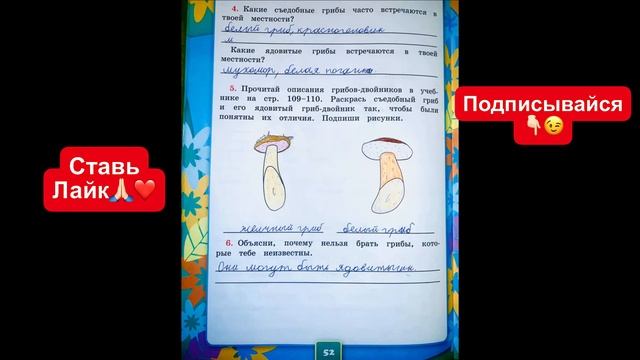 4. Какие съедобные грибы часто встречаются в
твоей местности?
белый гриб, красноголовик
м
Какие ядовитые грибы встречаются в твоей
местности?
мухомор, белая поганка
5. Прочитай описания грибов-двойников в учеб-
нике на стр. 109–110. Раскрась съедобный гриб
и его ядовитый гриб-двойник так, чтобы были
понятны их отличия. Подпиши рисунки.
желчный гриб белый гриб
6. Объясни, почему нельзя брать грибы, кото-
рые тебе неизвестны.
Они могут быть ядовитыми.
52
Ставь
Лайк🙏🏻❤️
Подписывайся
👇🏻😉